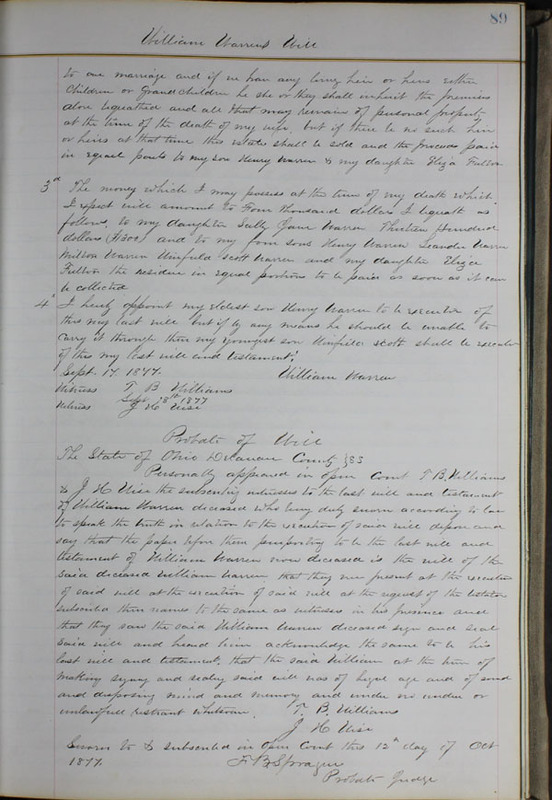 89
William Warrens Will
to one marriage and if she have any living heir or heirs either
children or Grandchildren he she or they shall inherit the premises
above bequathed and all that may remain of personal property
at the time of the death of my wife, but if there be no such heir
or heirs at that time this estate shall be sold and the proceeds paid
in equal parts to my son Henry Warren & my daughter Eliza Fulton
3rd The money which I may possess at the time of my death which
I expect will amount to Four thousand dollars I bequath as
follows, to my daughter Sally Jane Warren Thirteen Hundred
dollars ($1300) and to my four sons Henry Warren Leander Warren
Milton Warren Winfield Scott Warren and my daughter Eliza
Fulton the residue in equal portions to be paid as soon as it can
be collected
4th I hereby appoint my eldest son Henry Warren to be executor of
this my last will but if by any means he should be unable to
carry it through then my youngest son Winfield Scott shall be executor
of this my last will and testament.
Sept. 17 1877. William Warren
Witness T. B. Williams
Sept. 18th 1877
Witness J H Wise
Probate of Will
The State of Ohio Delaware County } SS
Personally appeared in open Court T. B. Williams
& J H Wise the subscribing witnesses to the last will and testament
of William Warren deceased who being duly sworn according to law
to speak the truth in relation to the execution of said will depose and
say that the paper before them purporting to be the last will and
testament of William Warren now deceased is the will of the
said deceased William Warren that they were present at the execution
of said will at the execution of said will at the request of the testator
subscribed their names to the same as witnesses in his presence and
that they saw the said William Warren deceased sign and seal
said will and heard him acknowledge the same to be his
last will and testament, that the said William at the time of
making signing and sealing said will was of legal age and of sound
and disposing mind and memory and under no undue or
unlawfull restraint whatever.
T. B. Williams
J H Wise
Sworn to & subscribed in open Court this 12th day of Oct
1877. F B Sprague
Probate Judge